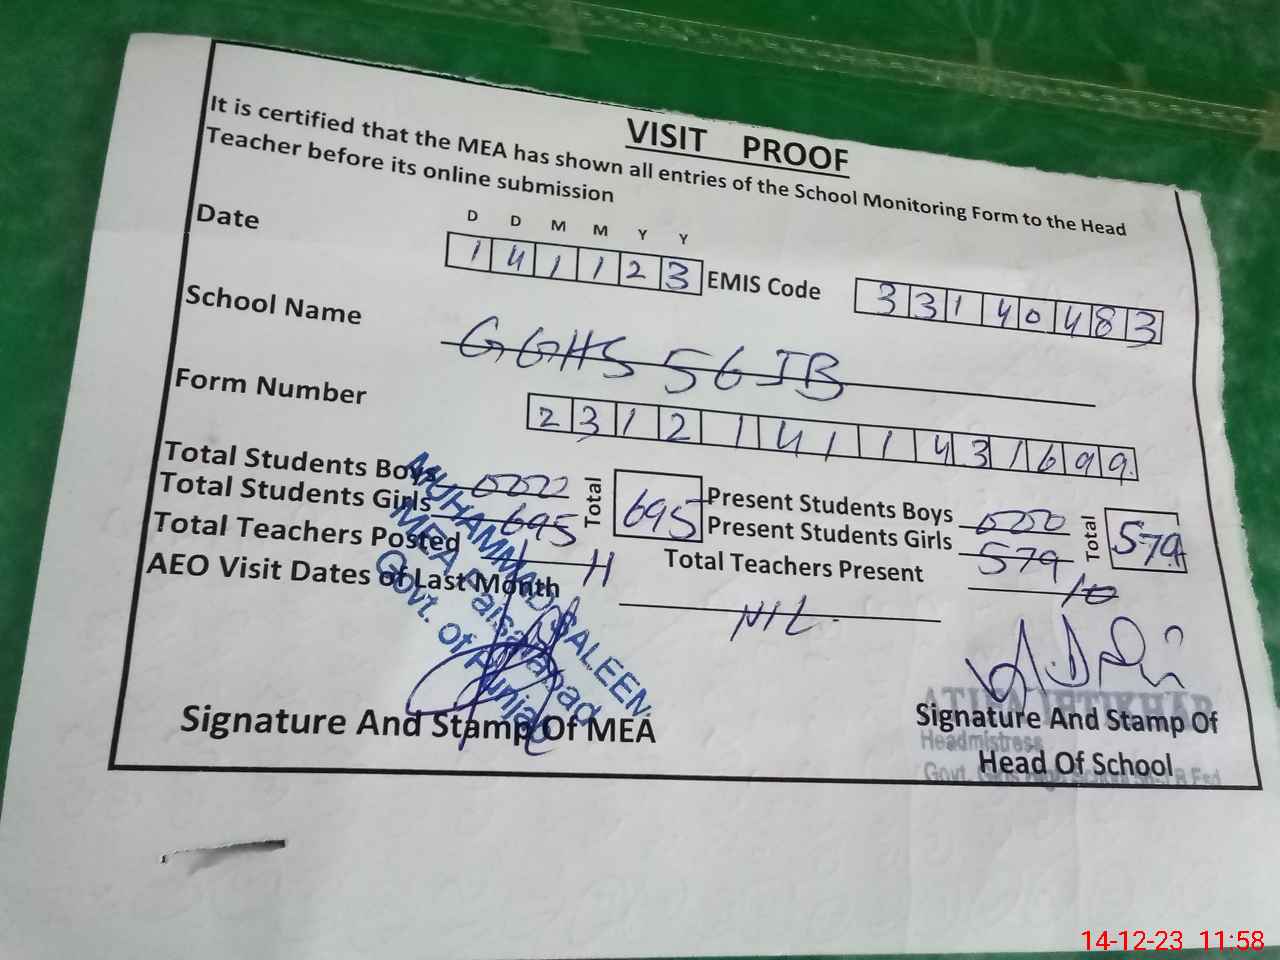 VISIT PROOF
It is certified that the MEA has shown all entries of the School Monitoring Form to the Head
Teacher before its online submission
D D M M Y Y
Date 1 4 1 1 2 3 EMIS Code 3 3 1 4 0 4 8 3
School Name GGHS 56 JB
Form Number 2 3 1 2 1 4 1 1 4 3 1 6 9 9
Total Students Boys 0000 Total 695 Present Students Boys 0000 Total 579
Total Students Girls 695 Present Students Girls 579
Total Teachers Posted 11 Total Teachers Present 10
AEO Visit Dates of Last Month NIL
MUHAMMAD SALEEM
MEA Faisalabad
Govt. of Punjab
Signature And Stamp Of MEA
IFTIKHAR
Signature And Stamp Of
Headmistress
Head Of School
Govt. Girls High School
14-12-23 11:58